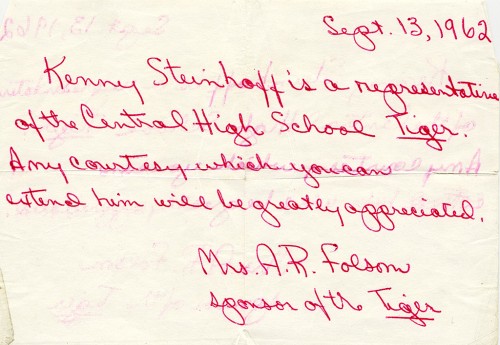 Sept. 13, 1962
Kenny Steinhoff is a representative
of the Central High School Tiger.
Any courtesy which you can
extend him will be greatly appreciated.
Mrs. A.R. Folsom
sponsor of the Tiger